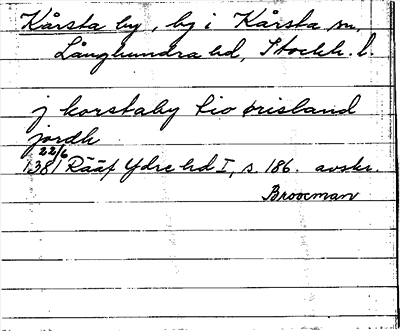 Kårsta by, by i Kårsta sn,
Långhundra hd, Stockh. l.
j korstaby tio ørisland
jordh
22/6
1381 Rääf Ydre hd I, s. 186. avskr.
Broocman